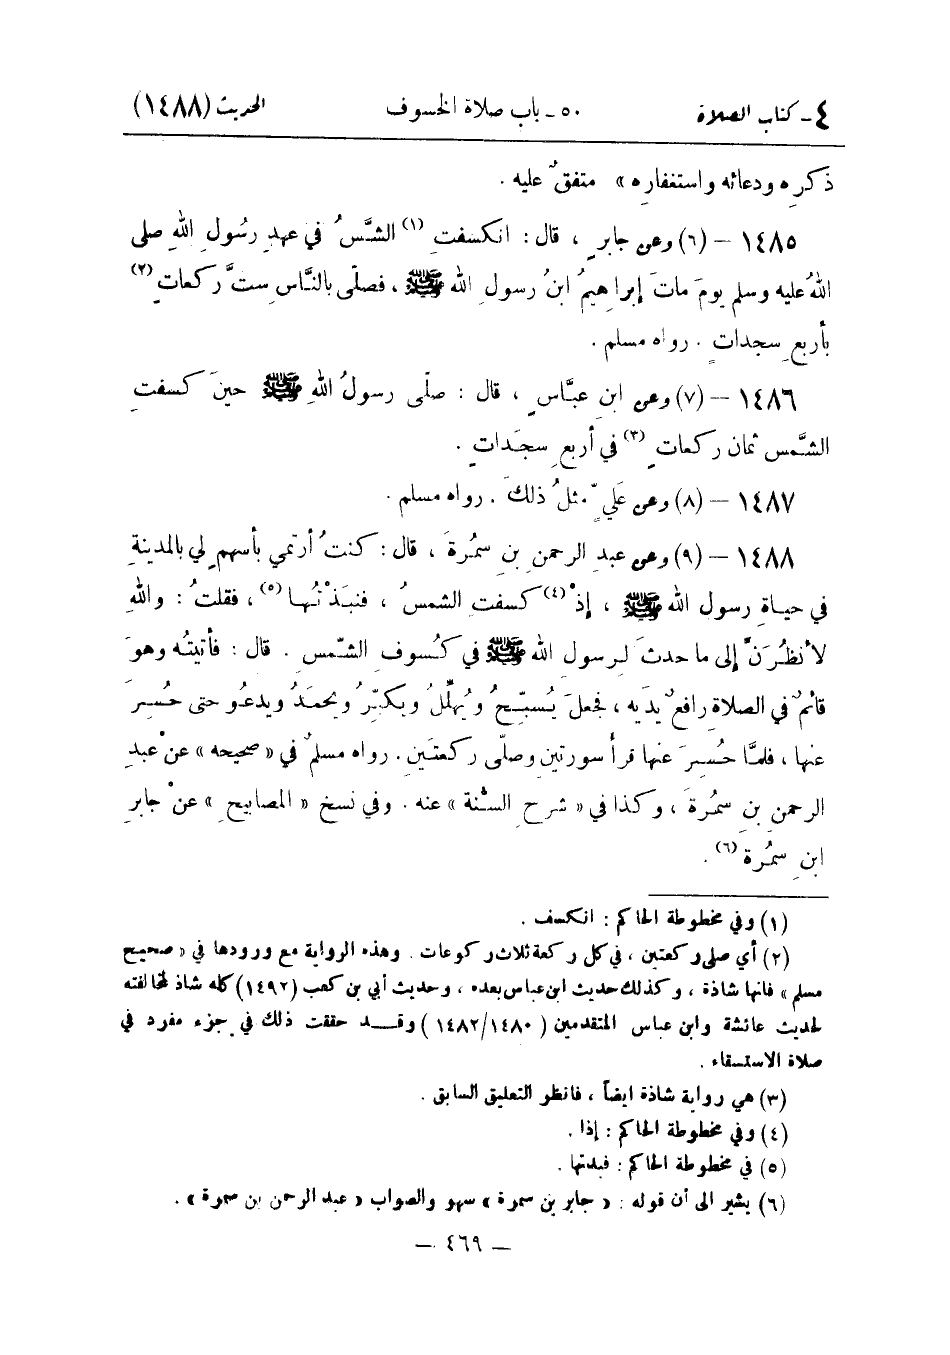 ٤- كتاب الصلاة ٥٠ - باب صلاة الخسوف الحديث (١٤٨٨)
ذكرِه ودعائه واستغفارِه» متفقٌ عليه .
١٤٨٥ – (٦) وعن جابرٍ ، قال : انكسفتِ (١) الشَّمسُ في عهدِ رسُولِ اللهِ صلى
اللهُ عليه وسلم يومَ ماتَ إبراهيمُ ابنُ رسولِ الله ﷺ ، فصلَّى بالنَّاسِ ستَّ ركعاتٍ (٢)
بأربعِ سجداتٍ . رواه مسلم .
١٤٨٦ – (٧) وعن ابنِ عبَّاسٍ ، قال : صلّى رسولُ اللهِ ﷺ حينَ كسفتِ
الشَّمس ثمان ركعاتٍ (٣) في أربعِ سجَداتٍ .
١٤٨٧ – (٨) وعن عَليٍّ مثلُ ذلكَ . رواه مسلم .
١٤٨٨ – (٩) وعن عبدِ الرحمنِ بنِ سمُرةَ ، قال : كنتُ أرتمي بأسهمٍ لي بالمدينةِ
في حياةِ رسولِ الله ﷺ ، إذْ (٤) كسفتِ الشمسُ ، فنبَذْتُها (٥) ، فقلتُ : واللهِ
لأنظُرَنَّ إلى ما حدثَ لِرسولِ الله ﷺ في كُسوفِ الشّمسِ . قال : فأتيتُه وهوَ
قائمٌ في الصلاةِ رافعٌ يدَيه ، فجعلَ يُسبّحُ ويُهلِّلُ ويكبّرُ ويحمَدُ ويدعُو حتى حُسِرَ
عنها ، فلمَّا حُسِرَ عنها قرأ سورتينِ وصلّى ركعتَينِ . رواه مسلمٌ في « صحيحه » عنْ عبدِ
الرحمنِ بنِ سمُرةَ ، وكذا في « شرحِ السُّنة » عنه . وفي نسخِ « المصابيحِ » عنْ جابرِ
ابنِ سمُرةَ (٦) .
(١) وفي مخطوطة الحاكم : انكسف .
(٢) أي صلى ركعتين ، في كل ركعة ثلاث ركوعات . وهذه الرواية مع ورودها في « صحيح
مسلم » فانها شاذة ، وكذلك حديث ابن عباس بعده ، وحديث أبي بن كعب (١٤٩٢) كله شاذ لمخالفته
لحديث عائشة وابن عباس المتقدمين (١٤٨٢/١٤٨٠) وقد حققت ذلك في جزء مفرد في
صلاة الاستسقاء .
(٣) هي رواية شاذة ايضاً ، فانظر التعليق السابق .
(٤) وفي مخطوطة الحاكم : إذا .
(٥) في مخطوطة الحاكم : فبدتها .
(٦) يشير الى أن قوله : « جابر بن سمرة » سهو والصواب « عبد الرحمن بن سمرة » .
— ٤٦٩ —